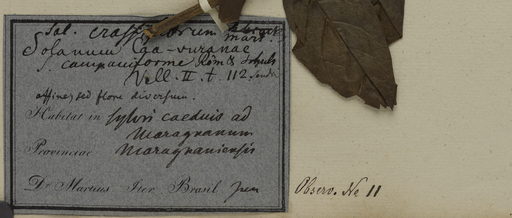 Sol. crassiflorum
mart.
Solanum Caa-vuranae
S. campaniforme Röm & Schult
Vell. II. t. 112.
affine, sed flore diversum.
Habitat in sylvis caeduis ad
Maragnanum
Provinciae Maragnaniensis
Dr Martius Iter Brasil
Observ. No 11